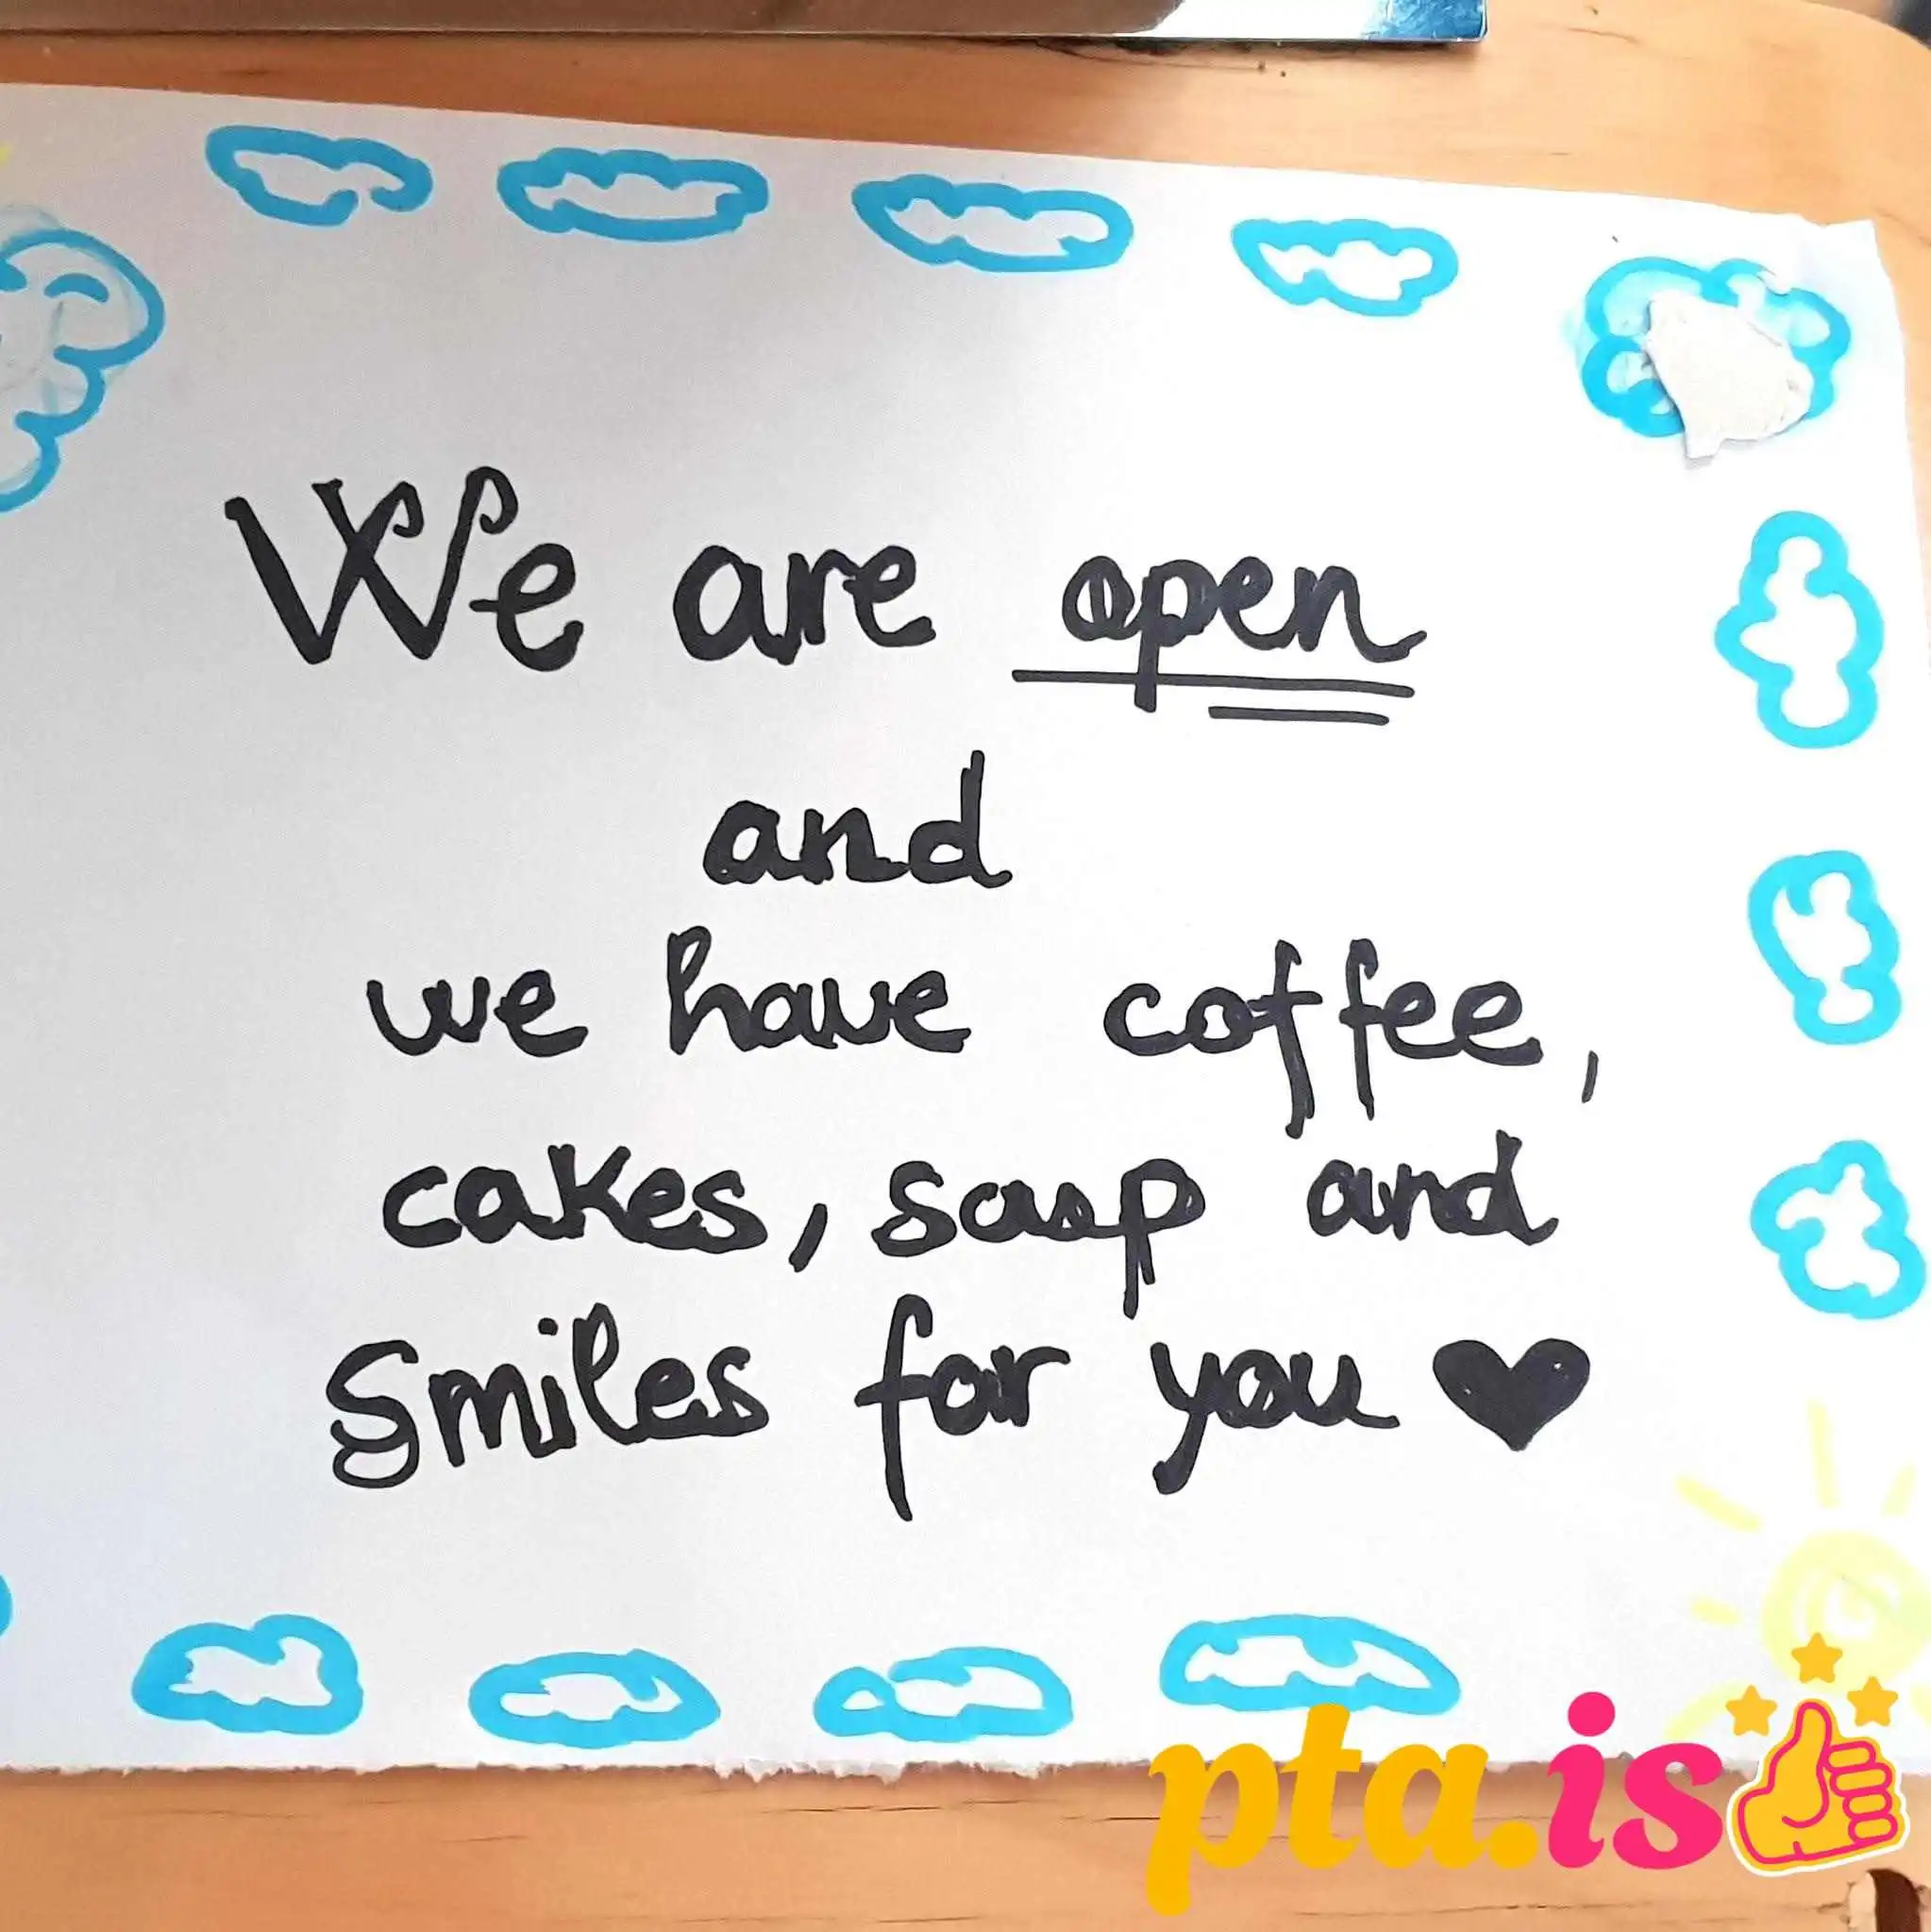 We are open
and
we have coffee,
cakes, soup and
Smiles for you ♥
pta.is